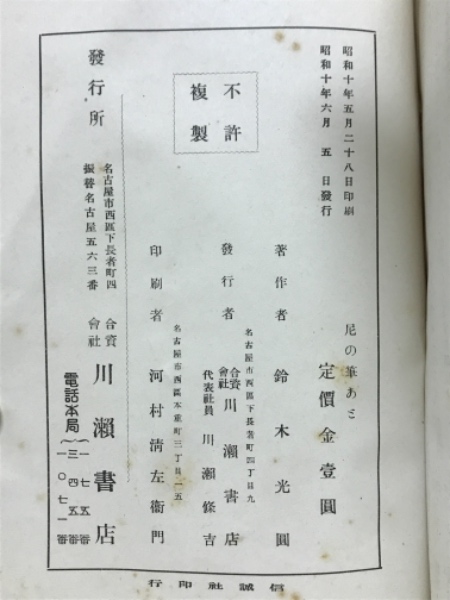 昭和十年五月二十八日印刷
昭和十年六月五日發行
尼の筆あと
定價金壹圓
不許
複製
著作者 鈴木光圓
名古屋市西區下長者町四丁目九
發行者 合資會社 川瀨書店
代表社員 川瀨條吉
名古屋市西區本重町三丁目一五
印刷者 河村淸左衞門
發行所
名古屋市西區下長者町四
振替名古屋五六三番
合資會社 川瀨書店
電話本局
信誠社印行